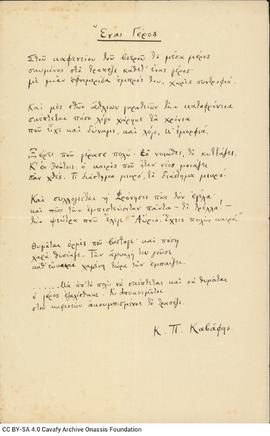 Ἕνας Γέρος
Στοῦ καφενείου τοῦ βοεροῦ τὸ μέσα μέρος
σκυμένος στὸ τραπέζι κάθετ' ἕνας γέρος·
μὲ μιὰν ἐφημερίδα ἐμπρός του, χωρὶς συντροφιά.
Καὶ μὲς στῶν ἄθλιων γηρατειῶν τὴν καταφρόνια
σκέπτεται πόσο λίγο χάρηκε τὰ χρόνια
ποῦ εἶχε καὶ δύναμι, καὶ λόγο, κ' ἐμορφιά.
Ξέρει ποῦ γέρασε πολύ· τὸ νοιώθει, τὸ κυττάζει.
Κ' ἐν τούτοις ὁ καιρὸς ποῦ ἦταν νέος μοιάζει
σὰν χθές. Τί διάστημα μικρό, τί διάστημα μικρό.
Καὶ συλλογιέται ἡ Φρόνησις πῶς τὸν ἐγέλα·
καὶ πῶς τὴν ἐμπιστεύονταν πάντα — τί τρέλλα! —
τὴν ψεύτρα ποῦ ἔλεγε· «Αὔριο. Ἔχεις πολὺν καιρό.»
Θυμᾶται ὁρμὲς ποῦ βάσταγε· καὶ πόση
χαρὰ θυσίαζε. Τὴν ἄμυαλή του γνῶσι
κάθ' εὐκαιρία χαμένη τώρα τὴν ἐμπαίζει.
.... Μὰ ἀπ' τὸ πολὺ νὰ σκέπτεται καὶ νὰ θυμᾶται
ὁ γέρος ἐζαλίσθηκε. Κι ἀποκοιμᾶται
στοῦ καφενείου ἀκουμπισμένος τὸ τραπέζι.
Κ. Π. Καβάφης
CC BY-SA 4.0 Cavafy Archive Onassis Foundation